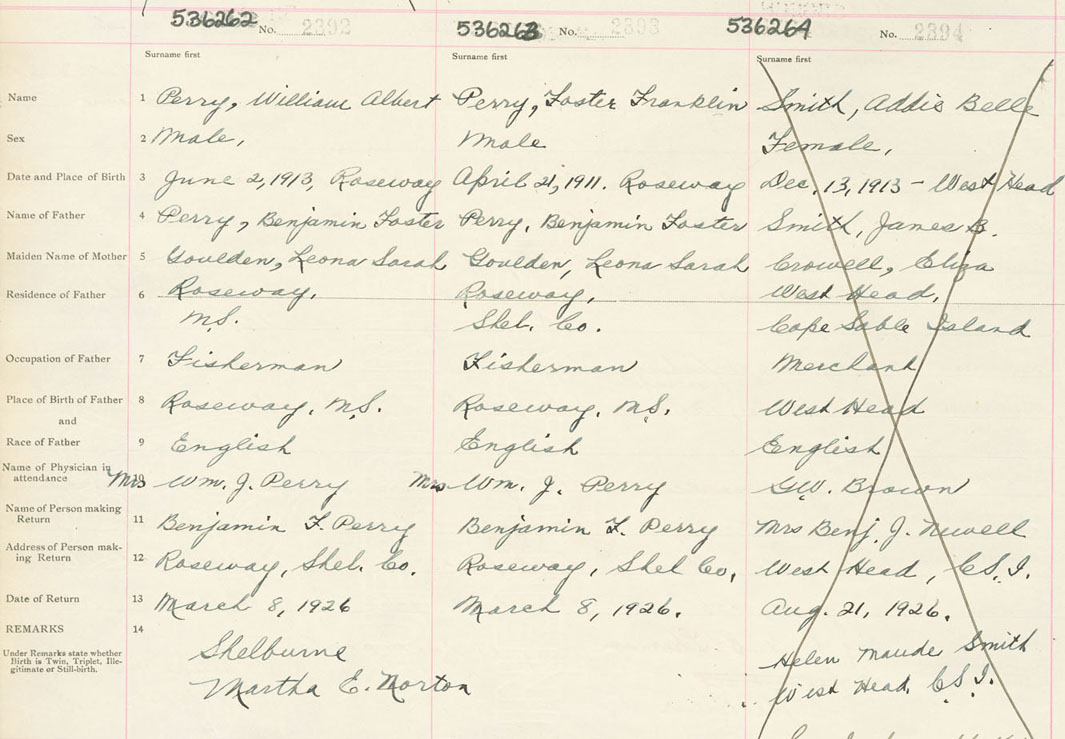 536262 No. 2392 536263 No. 2393 536264 No. 2394
Surname first Surname first Surname first
Name 1 Perry, William Albert Perry, Foster Franklin Smith, Addie Belle
Sex 2 Male, Male Female,
Date and Place of Birth 3 June 2, 1913, Roseway April 21, 1911. Roseway Dec. 13, 1913 - West Head
Name of Father 4 Perry, Benjamin Foster Perry, Benjamin Foster Smith, James B.
Maiden Name of Mother 5 Goulden, Leona Sarah Goulden, Leona Sarah Crowell, Eliza
Residence of Father 6 Roseway, Roseway, West Head,
N.S. Shel. Co. Cape Sable Island
Occupation of Father 7 Fisherman Fisherman Merchant
Place of Birth of Father 8 Roseway, N.S. Roseway, N.S. West Head
and
Race of Father 9 English English English
Name of Physician in attendance 10 Mrs Wm. J. Perry Mrs Wm. J. Perry G.W. Brown
Name of Person making Return 11 Benjamin F. Perry Benjamin F. Perry Mrs Benj. J. Newell
Address of Person mak-ing Return 12 Roseway, Shel. Co. Roseway, Shel Co, West Head, C.S.I.
Date of Return 13 March 8, 1926 March 8, 1926. Aug. 21, 1926.
REMARKS 14
Under Remarks state whether Birth is Twin, Triplet, Ille-gitimate or Still-birth.
Shelburne Helen Maude Smith
Martha E. Norton West Head, C.S.I.